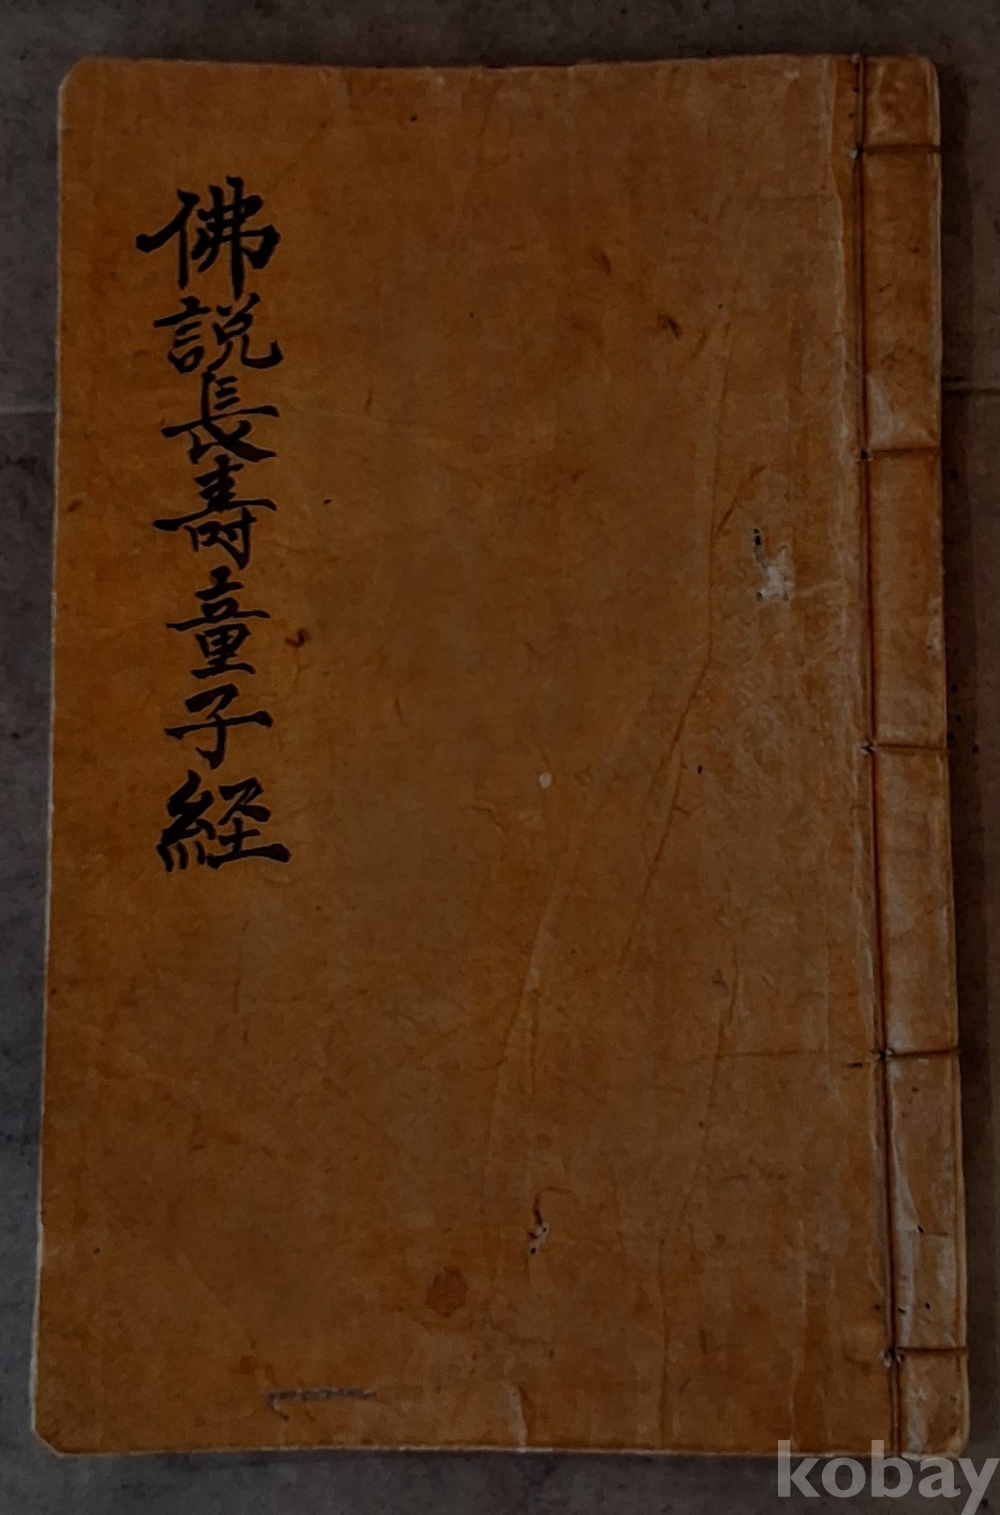 佛說長壽童子経
kobay